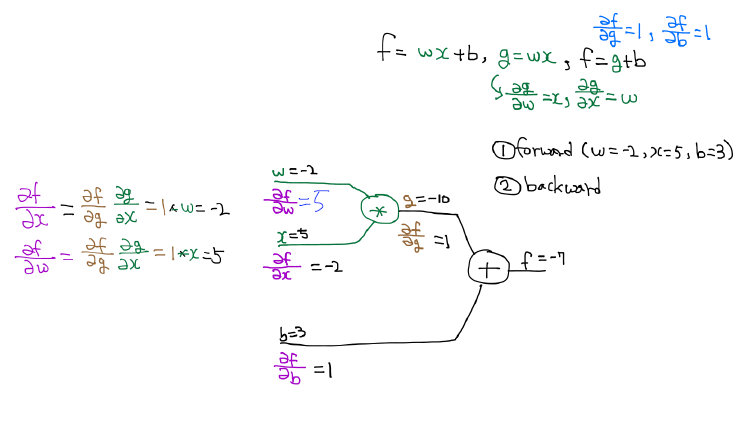 ∂f/∂g = 1, ∂f/∂b = 1
f = wx+b, g=wx, f=g+b
∂g/∂w = x, ∂g/∂x = w
① forward (w=-2, x=5, b=3)
② backward
∂f/∂x = ∂f/∂g ∂g/∂x = 1*w = -2
∂f/∂w = ∂f/∂g ∂g/∂x = 1*x = 5
w=-2
∂f/∂w = 5
*
g=-10
x=5
∂f/∂g = 1
∂f/∂x = -2
+
f=-7
b=3
∂f/∂b = 1